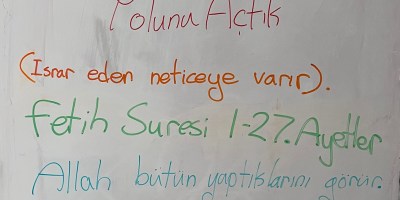 Yoluna Açtık
(Israr eden neticeye varır).
Fetih Suresi 1-27. Ayetler
Allah bütün yaptıklarını görür.